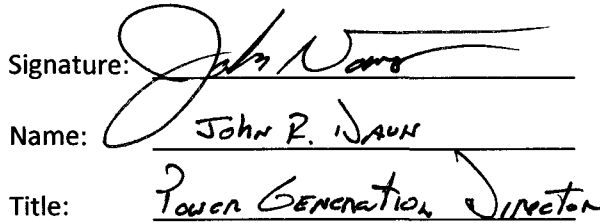 Signature: John
Name: John R. Naun
Title: Power Generation Director